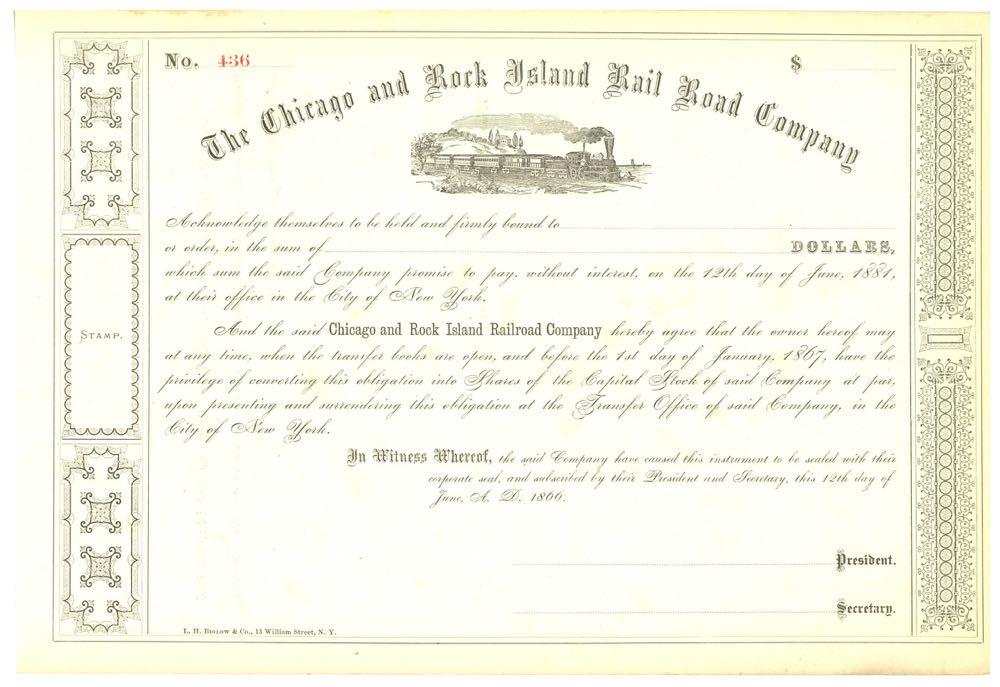 No. 436
$
The Chicago and Rock Island Rail Road Company
Acknowledge themselves to be held and firmly bound to
or order, in the sum of DOLLARS,
which sum the said Company promise to pay, without interest, on the 12th day of June, 1881,
at their office in the City of New York.
And the said Chicago and Rock Island Railroad Company hereby agree that the owner hereof may
at any time, when the transfer books are open, and before the 1st day of January, 1867, have the
privilege of converting this obligation into Shares of the Capital Stock of said Company at par,
upon presenting and surrendering this obligation at the Transfer Office of said Company, in the
City of New York.
STAMP.
In Witness Whereof, the said Company have caused this instrument to be sealed with their
corporate seal, and subscribed by their President and Secretary, this 12th day of
June, A. D. 1866.
President.
Secretary.
L. H. BIGLOW & Co., 13 William Street, N. Y.